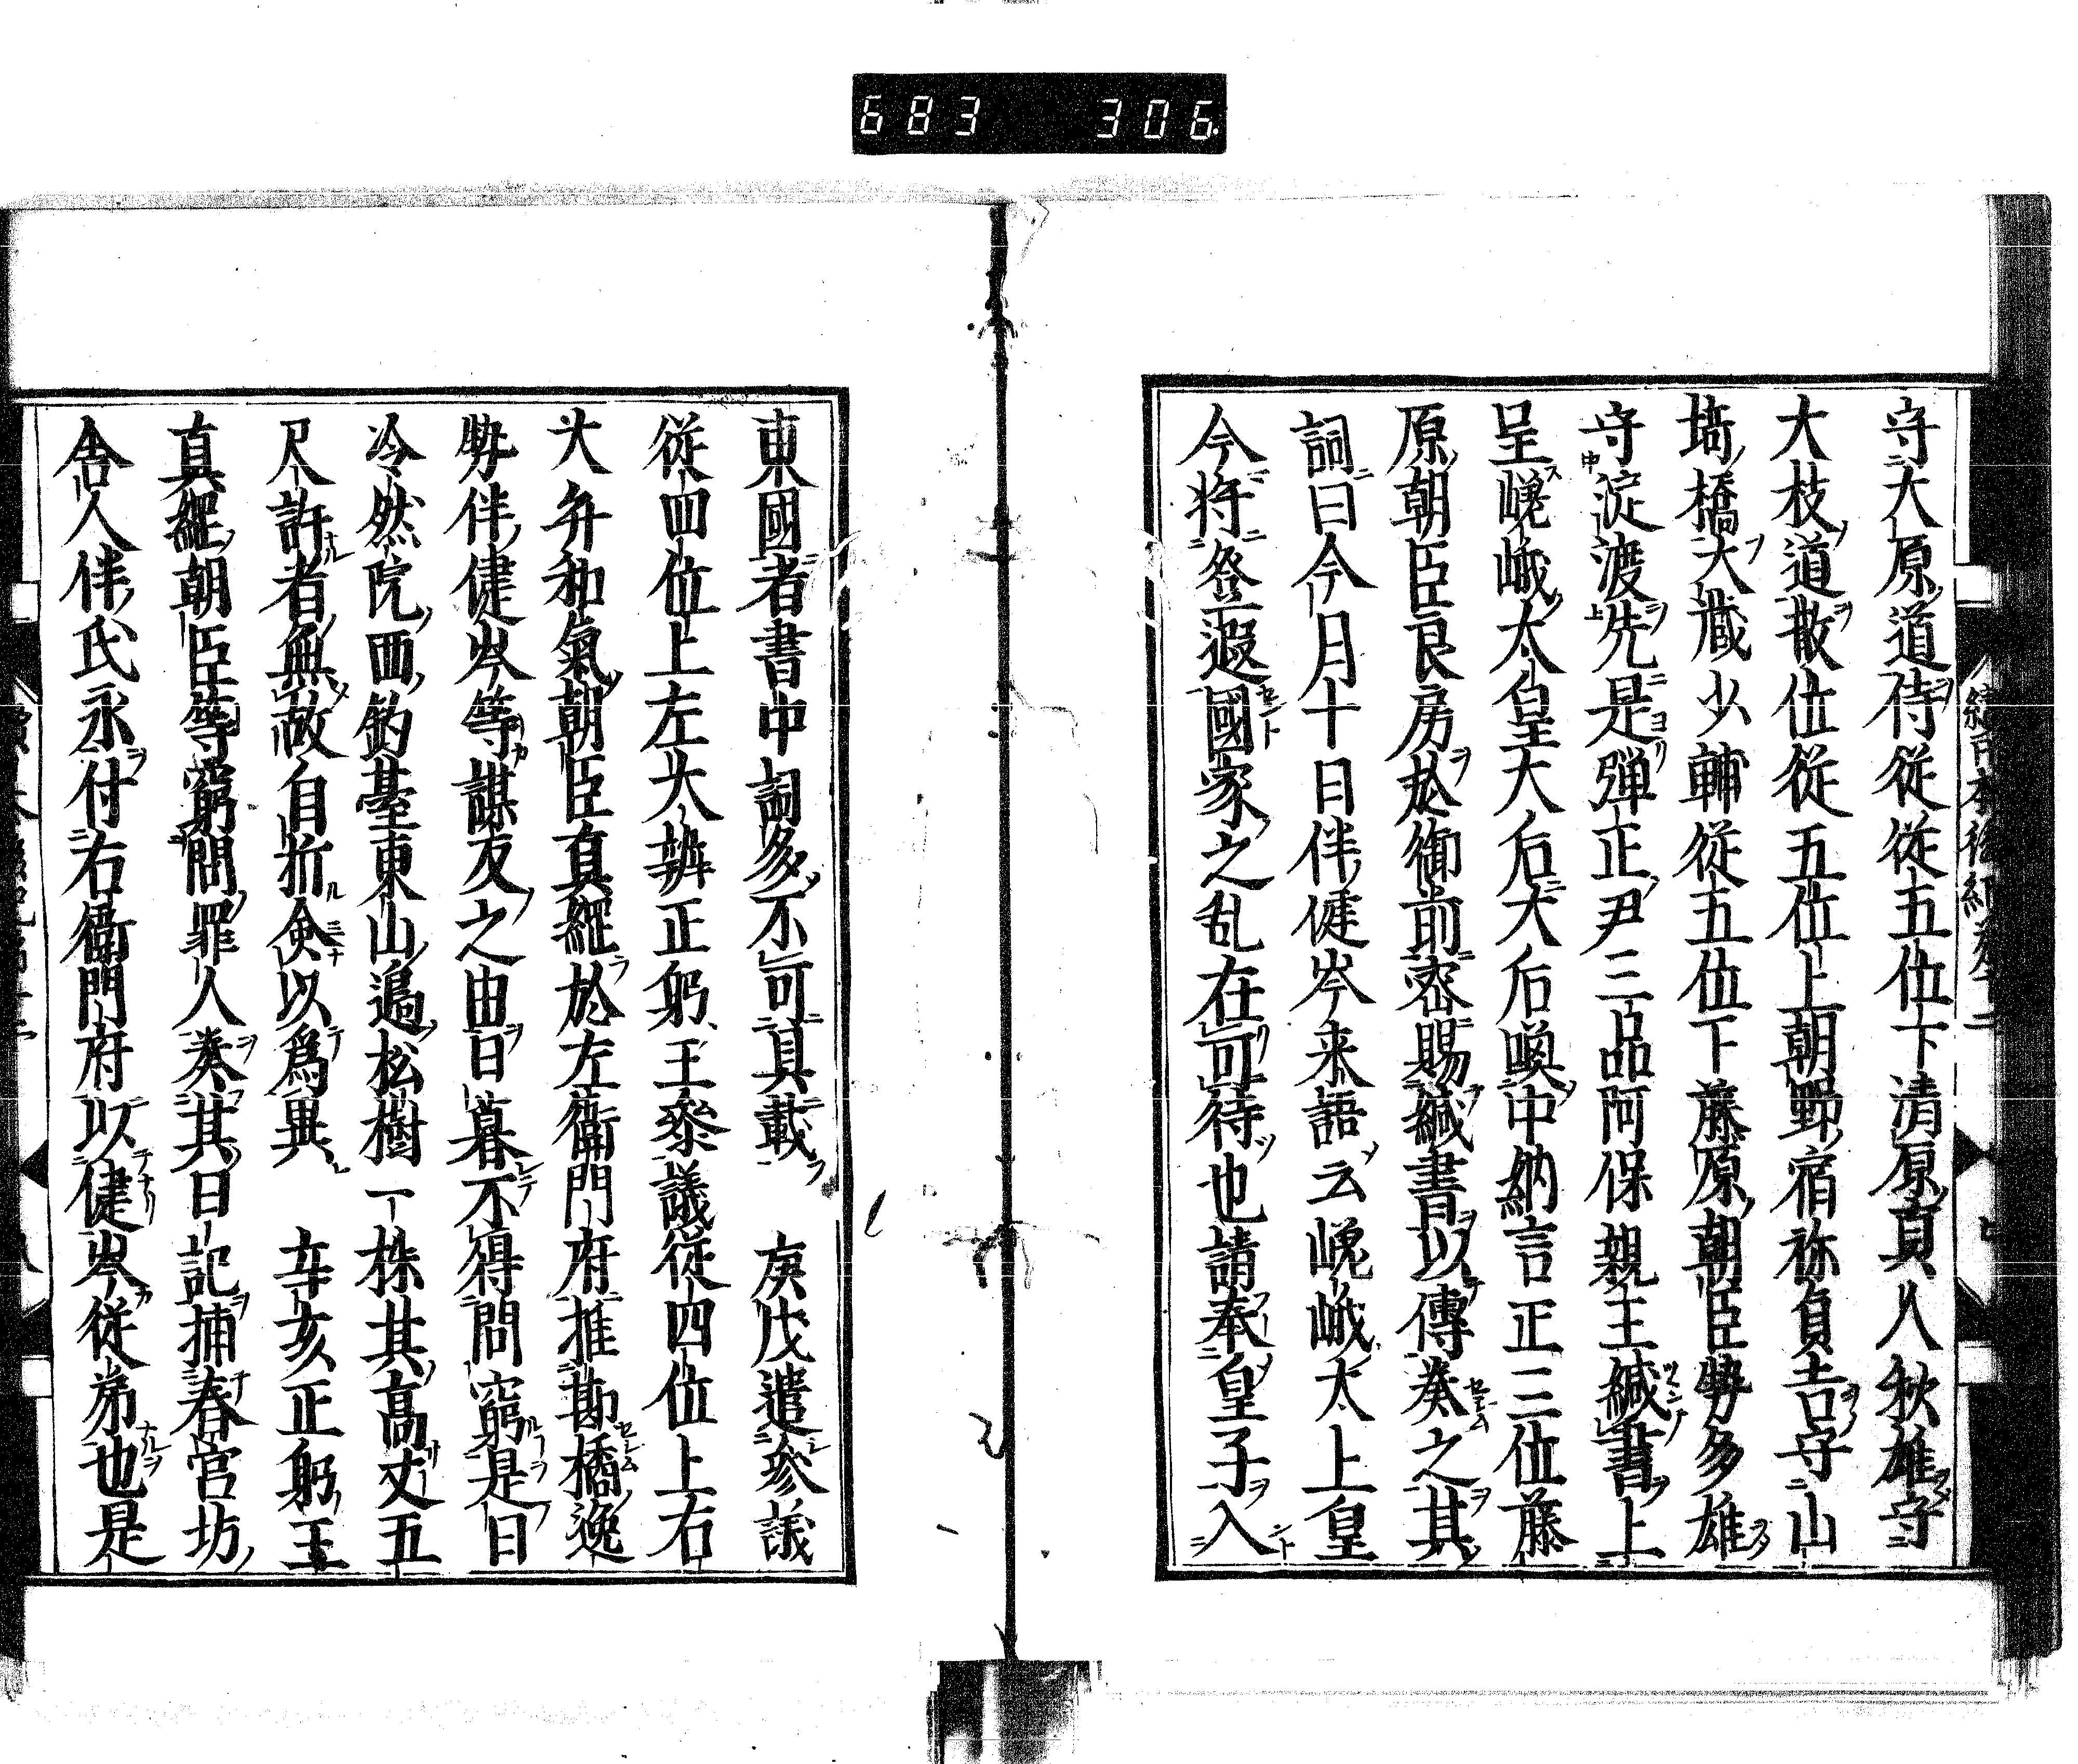 683 306
守大原道侍従従五位下清原真人秋雄守
大枝道散位従五位上朝野宿祢貞吉守山
埼橋大蔵少輔従五位下藤原朝臣勢多雄
守淀渡先是弾正尹三品阿保親王緘書上
呈嵯峨太皇大后大后喚中納言正三位藤
原朝臣良房於御前密賜緘書以傳奏之其
詞曰今月十日伴健岑来語云嵯峨太上皇
今将登遐國家之乱在可待也請奉皇子入
東國者書中詞多不可具載 庚戌遣参議
従四位上左大辨正躬王参議従四位上右
大弁和氣朝臣真綱於左衛門府推勘橘逸
勢伴健岑等謀反之由日暮不得問窮是日
冷然院西釣臺東山邊松樹一株其高丈五
尺許者無故自折僉以為異 辛亥正躬王
真綱朝臣等窮問罪人奏其日記捕春宮坊
舎人伴氏永付右衛門府以健岑従弟也是